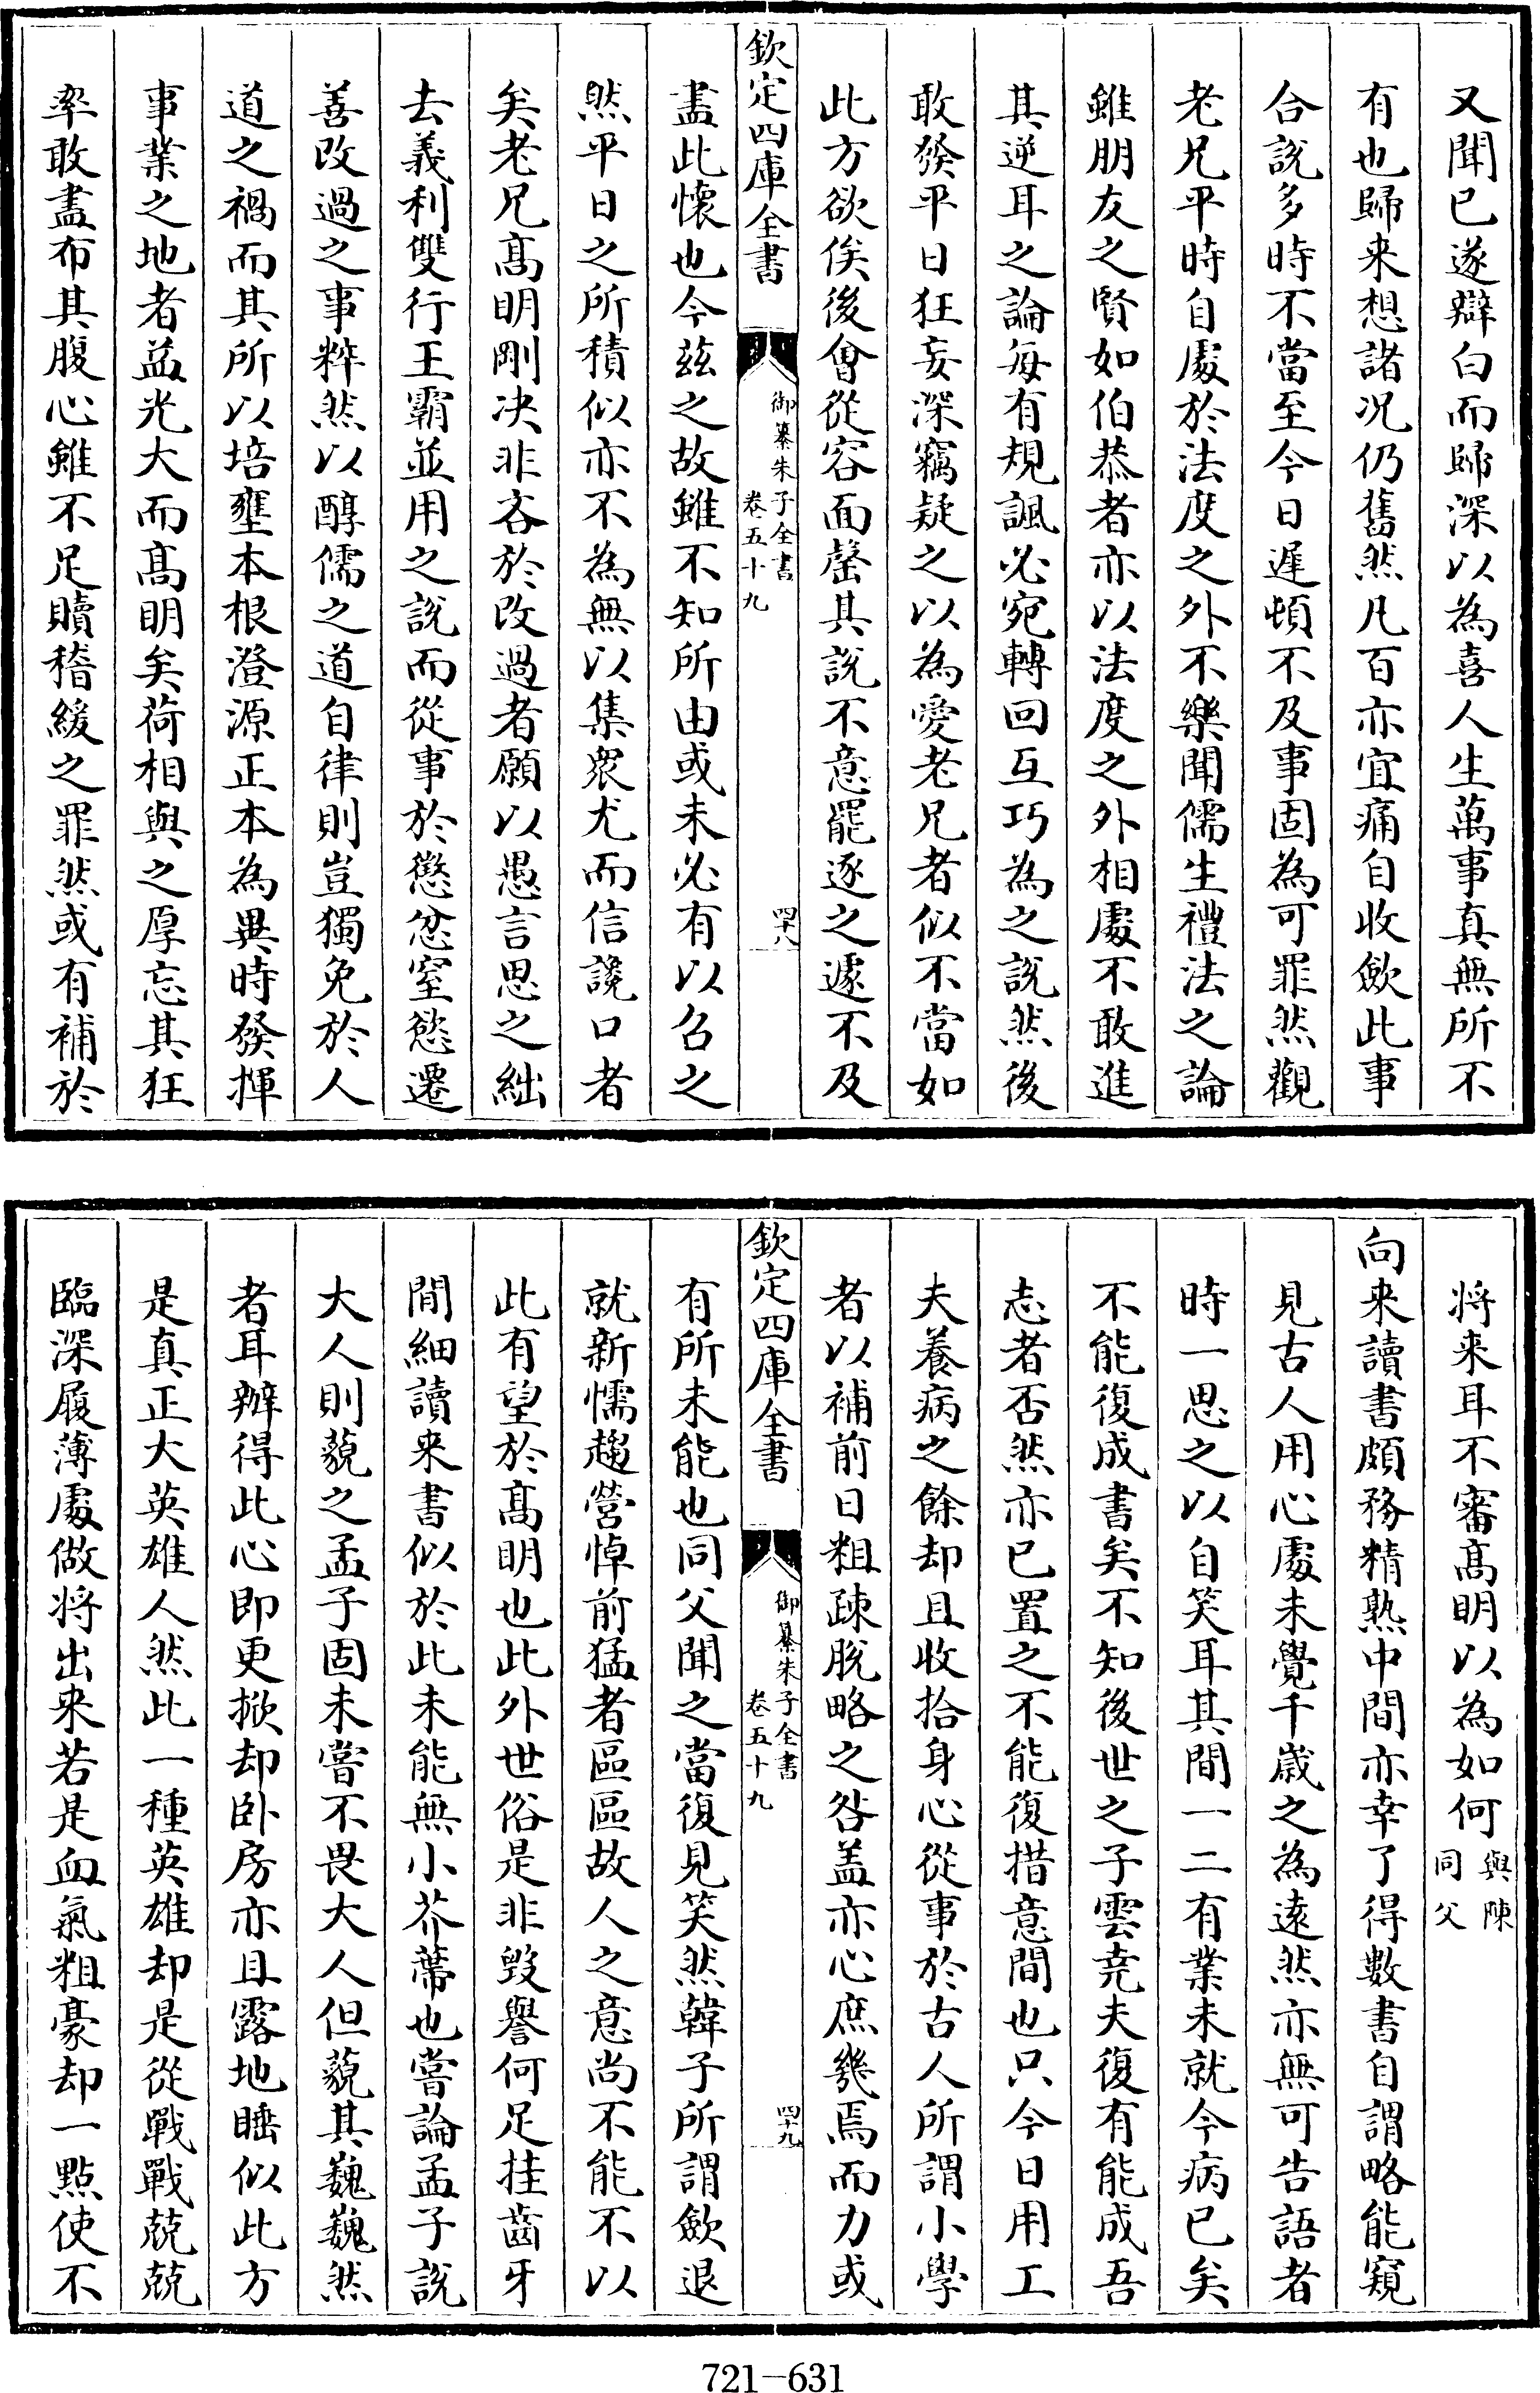 又聞已遂辯白而歸深以為喜人生萬事真無所不
有也歸来想諸况仍舊然凡百亦宜痛自收歛此事
合説多時不當至今日遲頓不及事固為可罪然觀
老兄平時自處於法度之外不樂聞儒生禮法之論
雖朋友之賢如伯恭者亦以法度之外相處不敢進
其逆耳之論每有規諷必宛轉回互巧為之説然後
敢發平日狂妄深竊疑之以為愛老兄者似不當如
此方欲俟後會從容面罄其説不意罷逐之遽不及
欽定四庫全書
御纂朱子全書
卷五十九
四十八
盡此懷也今兹之故雖不知所由或未必有以召之
然平日之所積似亦不為無以集衆尤而信讒口者
矣老兄髙明剛决非吝於改過者願以愚言思之絀
去義利雙行王霸並用之説而從事於懲忿窒慾遷
善改過之事粹然以醇儒之道自律則豈獨免於人
道之禍而其所以培壅本根澄源正本為異時發揮
事業之地者益光大而髙明矣荷相與之厚忘其狂
率敢盡布其腹心雖不足贖稽緩之罪然或有補於
將来耳不審髙明以為如何與陳同父
向来讀書頗務精熟中間亦幸了得數書自謂略能窺
見古人用心處未覺千歳之為逺然亦無可告語者
時一思之以自笑耳其間一二有業未就今病已矣
不能復成書矣不知後世之子雲堯夫復有能成吾
志者否然亦已置之不能復措意間也只今日用工
夫養病之餘却且收拾身心從事於古人所謂小學
者以補前日粗疎脱略之咎盖亦心庶幾焉而力或
欽定四庫全書
御纂朱子全書
卷五十九
四十九
有所未能也同父聞之當復見笑然韓子所謂歛退
就新懦趨營悼前猛者區區故人之意尚不能不以
此有望於髙明也此外世俗是非毁譽何足挂齒牙
間細讀来書似於此未能無小芥蔕也嘗論孟子説
大人則藐之孟子固未嘗不畏大人但藐其巍巍然
者耳辦得此心即更掀却卧房亦且露地睡似此方
是真正大英雄人然此一種英雄却是從戰戰兢兢
臨深履薄處做將出来若是血氣粗豪却一點使不
721-631